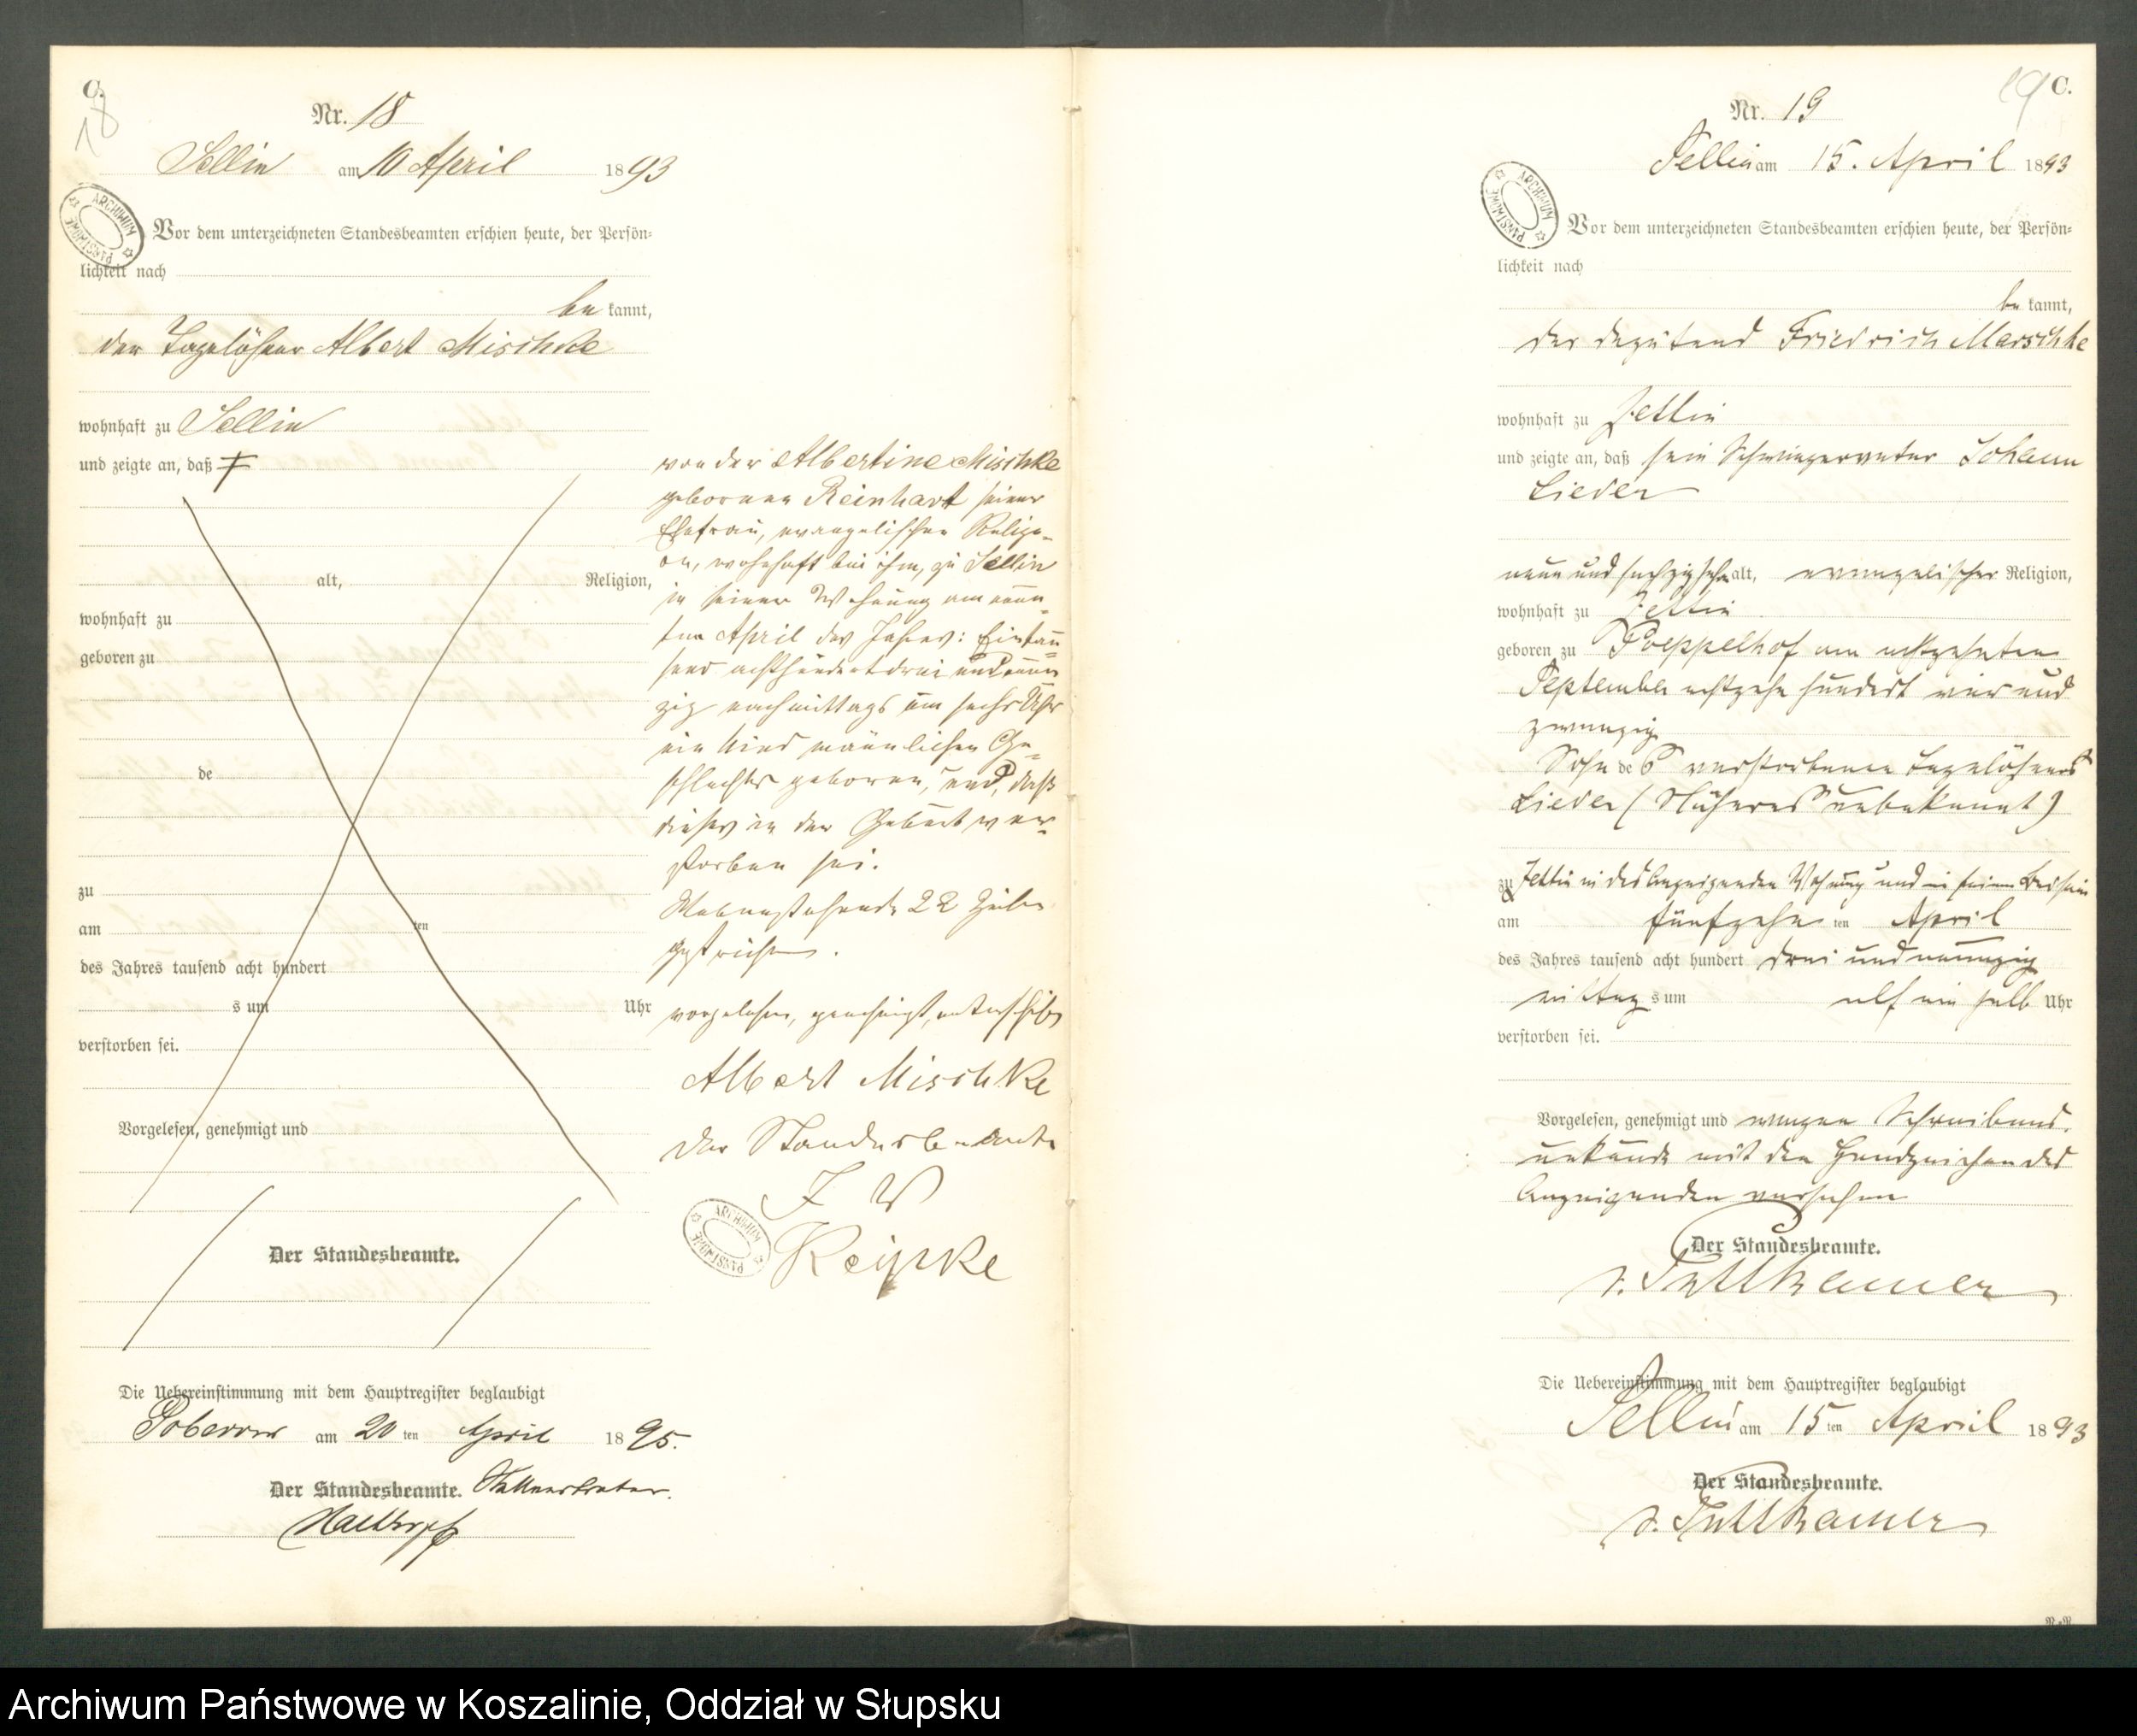 C.
18
Nr. 18
Sellin am 10 April 1893
ARCHIWUM PAŃSTWOWE
Vor dem unterzeichneten Standesbeamten erschien heute, der Persön-
lichkeit nach
be kannt,
der Tagelöhner Albert Mischke
wohnhaft zu Sellin
und zeigte an, daß
alt, Religion,
wohnhaft zu
geboren zu
de
zu
am ten
des Jahres tausend acht hundert
s um Uhr
verstorben sei.
Vorgelesen, genehmigt und
Der Standesbeamte.
von der Albertine Mischke
geborenen Reinhart seiner
Ehefrau, evangelischer Religi-
on, wohnhaft bei ihm, zu Sellin
in seiner Wohnung am neun-
ten April des Jahres: Eintau-
send achthundert drei und neun
zig nachmittags um sechs Uhr
ein Kind männlichen Ge-
schlechts geboren, und, daß
dieses in der Geburt ver-
storben sei.
Nebenstehende 22 Zeilen
gestrichen.
vorgelesen, genehmigt, unterschrieben
Albert Mischke
Der Standesbeamte
I V
ARCHIWUM PAŃSTWOWE
Reipke
Die Uebereinstimmung mit dem Hauptregister beglaubigt
am 20 ten April 1895.
Der Standesbeamte. Stellvertreter.
19 C.
Nr. 19
Sellin am 15. April 1893
ARCHIWUM PAŃSTWOWE
Vor dem unterzeichneten Standesbeamten erschien heute, der Persön-
lichkeit nach
be kannt,
der Deputand Friedrich Marschke
wohnhaft zu Zettin
und zeigte an, daß sein Schwiegervater Johann
Lieder
neun und sechzig Jahr alt, evangelischer Religion,
wohnhaft zu Zettin
geboren zu Poeppelhof am achtzehnten
September achtzehn hundert vier und
zwanzig
Sohn des verstorbenen Tagelöhners
Lieder (Näheres unbekannt)
zu Zettin in des Anzeigenden Wohnung und in seinem Beisein
am fünfzehn ten April
des Jahres tausend acht hundert drei und neunzig
mittag s um elf ein halb Uhr
verstorben sei.
Vorgelesen, genehmigt und wegen Schreibens-
unkunde mit den Handzeichen des
Anzeigenden versehen
Der Standesbeamte.
v. Puttkamer
Die Uebereinstimmung mit dem Hauptregister beglaubigt
Sellin am 15 ten April 1893
Der Standesbeamte.
v. Puttkamer
Archiwum Państwowe w Koszalinie, Oddział w Słupsku